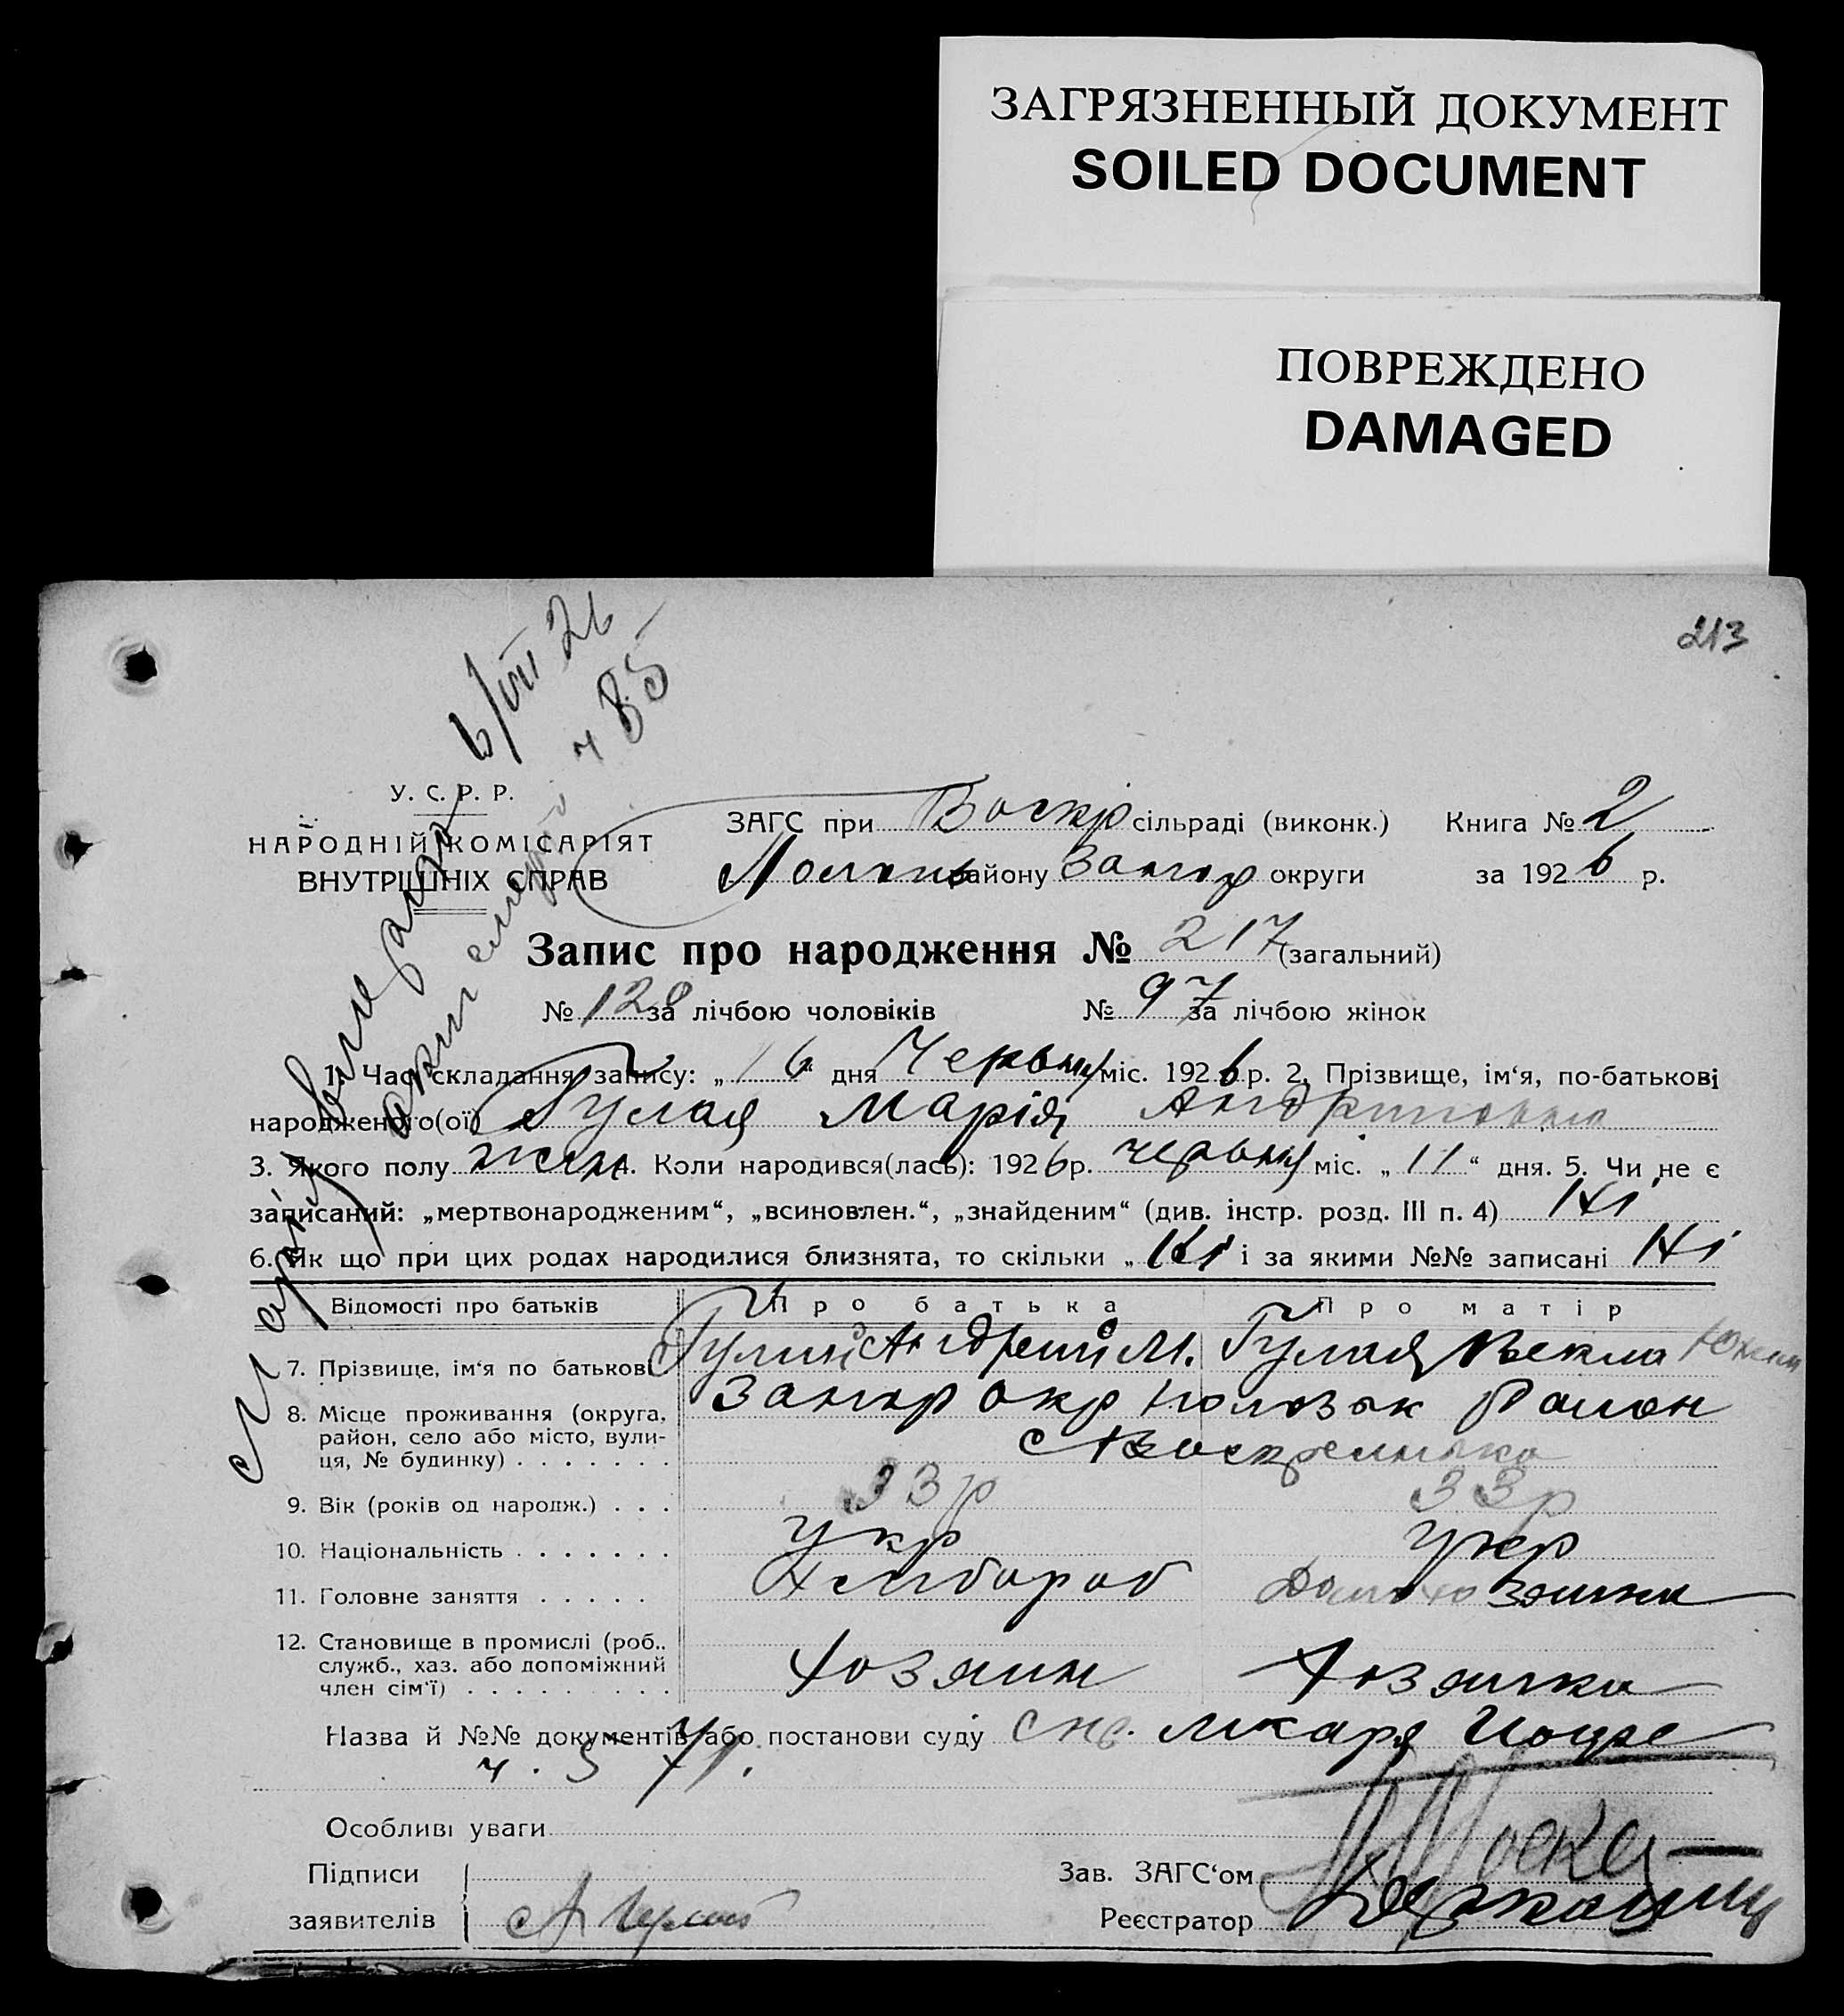 ЗАГРЯЗНЕННЫЙ ДОКУМЕНТ
SOILED DOCUMENT
ПОВРЕЖДЕНО
DAMAGED
213
6/VIII 26
ч 85
Марія вмерла
акт смерті
У. С. Р. Р.
НАРОДНІЙ КОМІСАРІЯТ
ВНУТРІШНІХ СПРАВ
ЗАГС при Воскр сільраді (виконк.) Книга № 2
району Запор округи за 1926 р.
Запис про народження № 217 (загальний)
№ 120 за лічбою чоловіків № 97 за лічбою жінок
1. Час складання запису: „16“ дня Червня міс. 1926 р. 2. Прізвище, ім'я, по-батькові
народженого(ої) Гулая Марія Андріівна
3. Якого полу жін 4. Коли народився(лась): 1926 р. червня міс. „11“ дня. 5. Чи не є
записаний: „мертвонародженим“, „всиновлен.“, „знайденим“ (див. інстр. розд. III п. 4) Ні
6. Як що при цих родах народилися близнята, то скільки „Ні і за якими №№ записані Ні
Відомості про батьків Про батька Про матір
7. Прізвище, ім'я по батькові Гулий Андрей М. Гулая Векла
8. Місце проживання (округа, Запор окр Район
район, село або місто, вули-
ця, № будинку) с Воскресенка
9. Вік (років од народж.) 33 р 33 р
10. Національність Укр Укр
11. Головне заняття Хлібороб Домохозяйка
12. Становище в промислі (роб.,
служб., хаз. або допоміжний Хозяин Хозяйка
член сім'ї)
Назва й №№ документів або постанови суду лікаря
ч. 571.
Особливі уваги
Підписи
заявителів А Гулий
Зав. ЗАГС'ом
Реєстратор